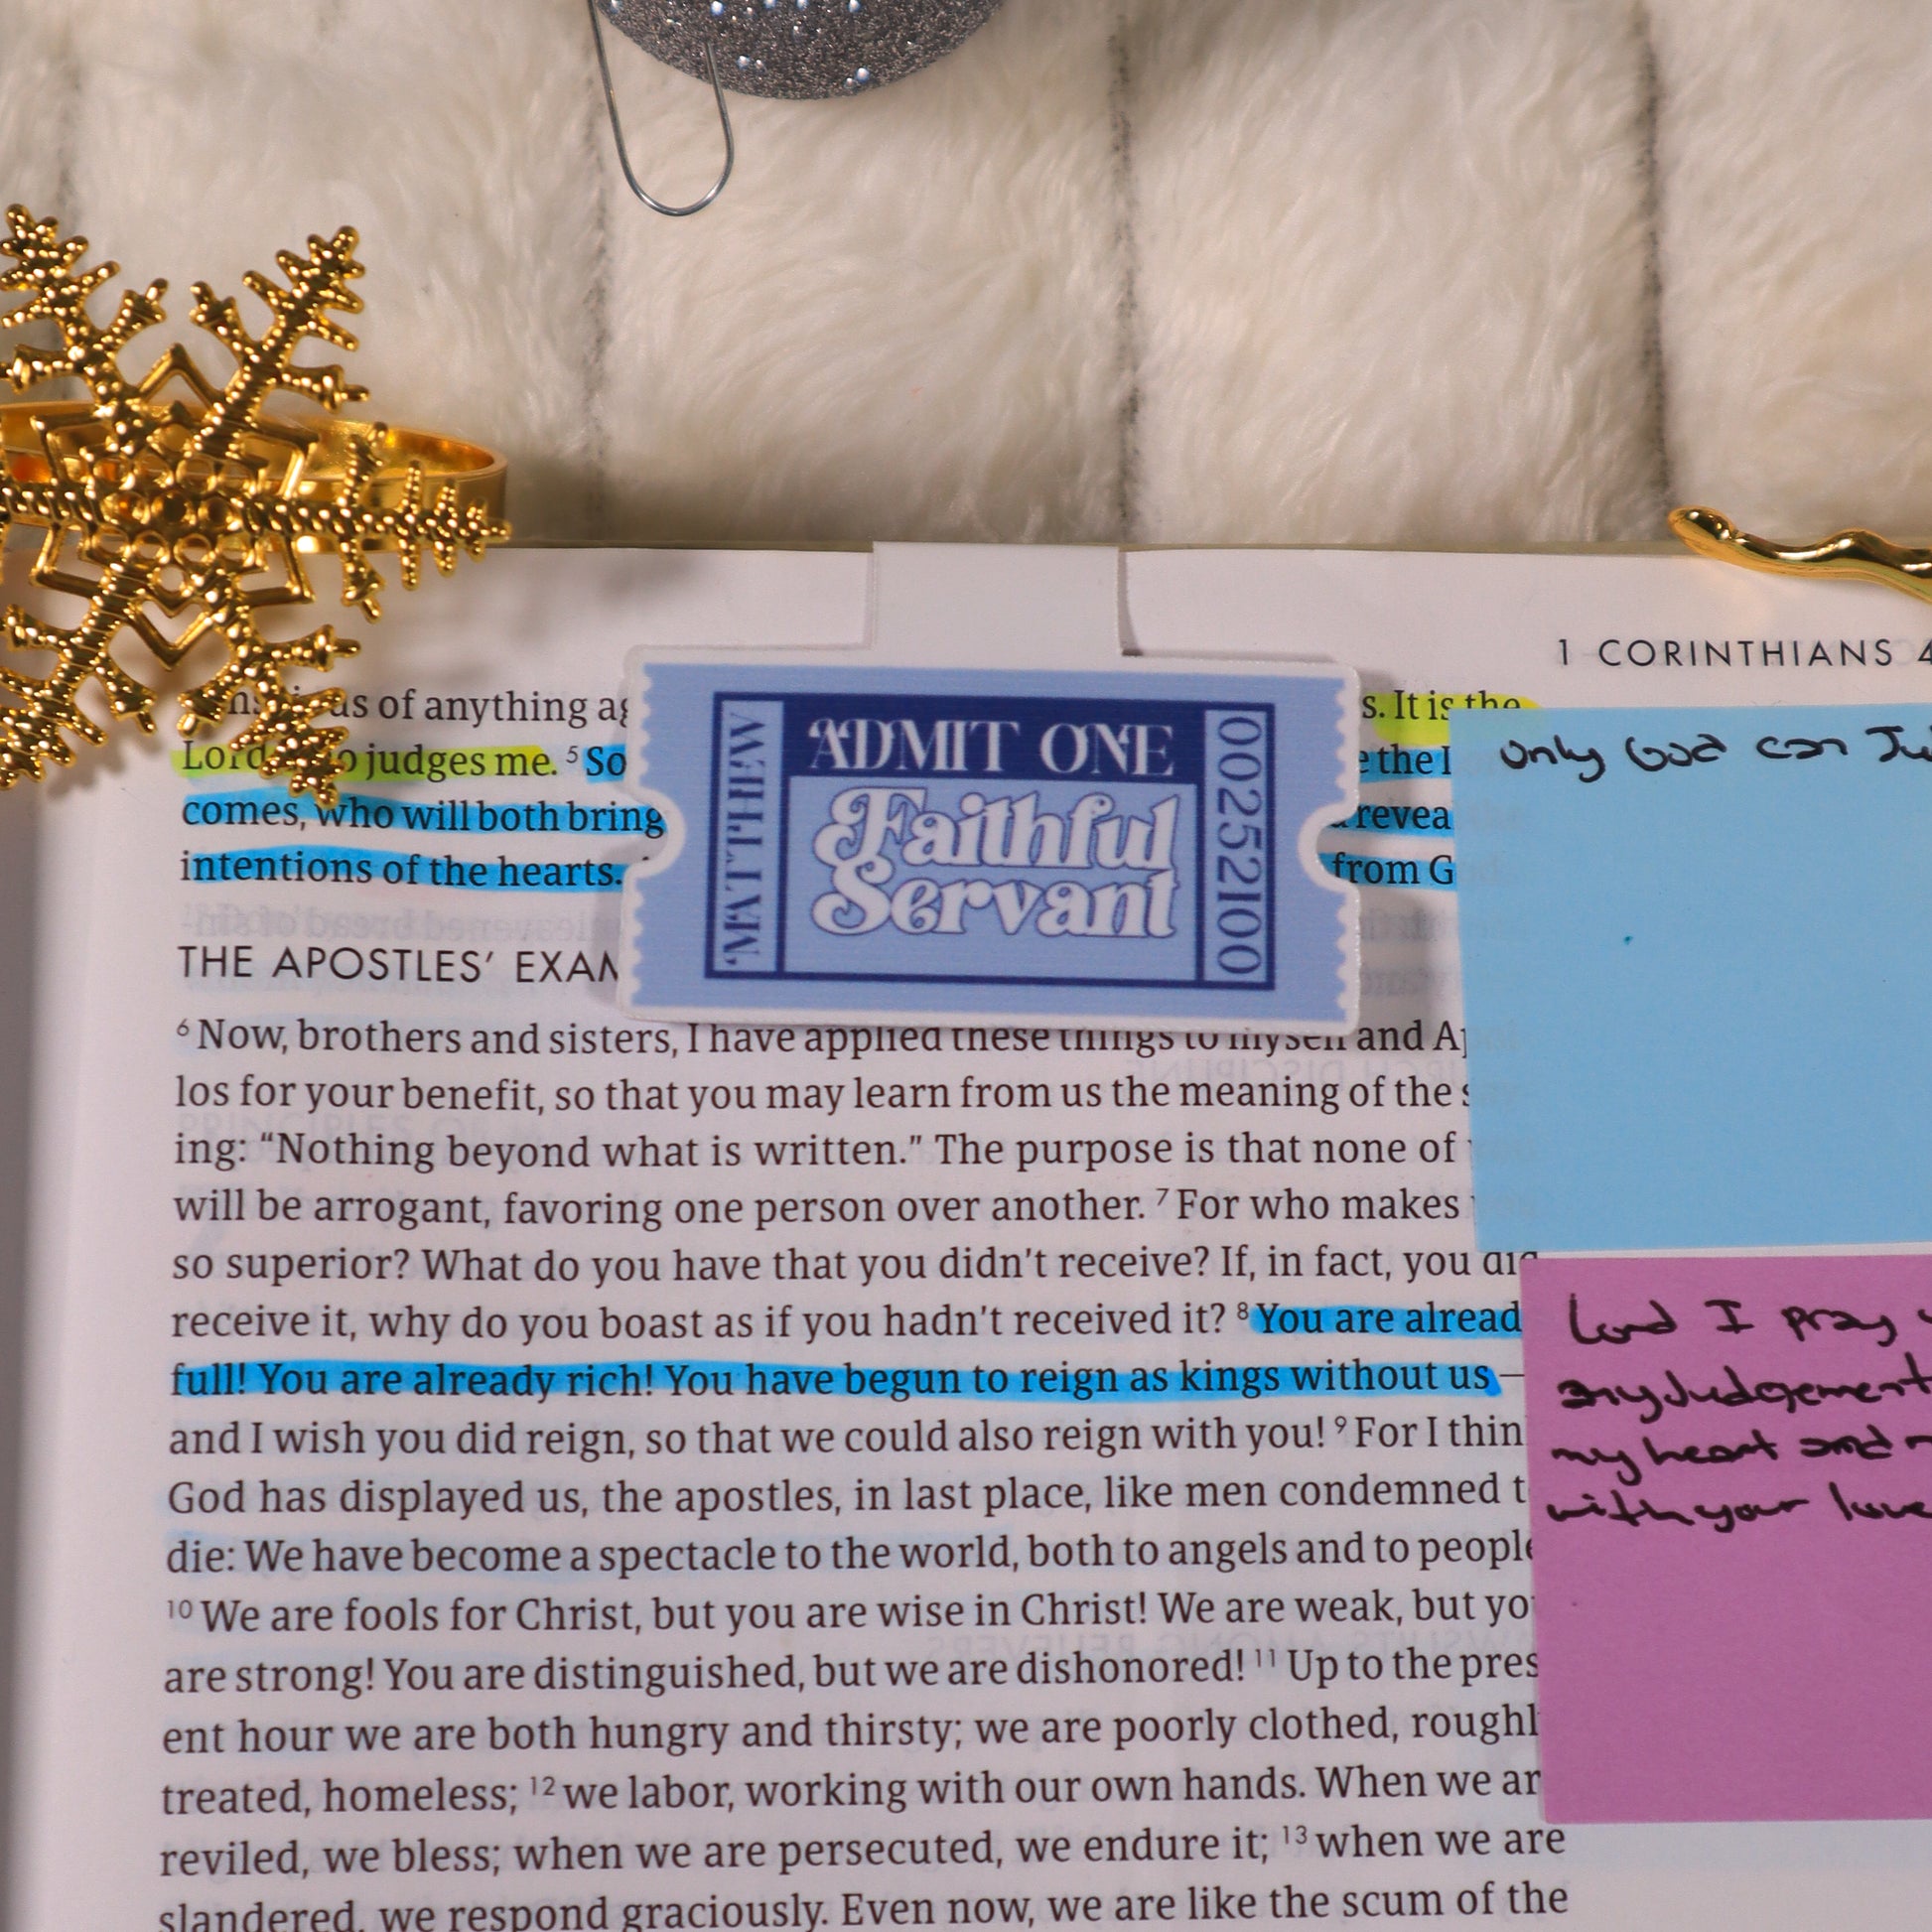 1 CORINTHIANS 4
of anything s. It is the
judges me. ⁵ So the
comes, who will both bring
intentions of the hearts. from
ADMIT ONE
MATTHEW
Faithful
Servant
00252100
THE APOSTLES’
⁶ Now, brothers and sisters, I have applied these things to myself and
los for your benefit, so that you may learn from us the meaning of the
ing: “Nothing beyond what is written.” The purpose is that none of
will be arrogant, favoring one person over another. ⁷ For who makes
so superior? What do you have that you didn't receive? If, in fact, you did
receive it, why do you boast as if you hadn't received it? ⁸ You are alread
full! You are already rich! You have begun to reign as kings without us—
and I wish you did reign, so that we could also reign with you! ⁹ For I thin
God has displayed us, the apostles, in last place, like men condemned t
die: We have become a spectacle to the world, both to angels and to people
¹⁰ We are fools for Christ, but you are wise in Christ! We are weak, but yo
are strong! You are distinguished, but we are dishonored! ¹¹ Up to the pres
ent hour we are both hungry and thirsty; we are poorly clothed, roughl
treated, homeless; ¹² we labor, working with our own hands. When we ar
reviled, we bless; when we are persecuted, we endure it; ¹³ when we are
slandered, we respond graciously. Even now, we are like the scum of the
only God can Ju
Lord I pray
any Judgement
my heart and
with your love